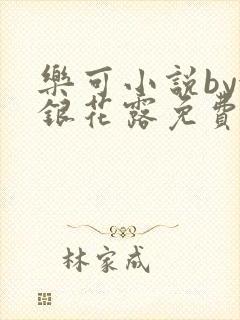 樂可小說by
銀花露免費
林家成